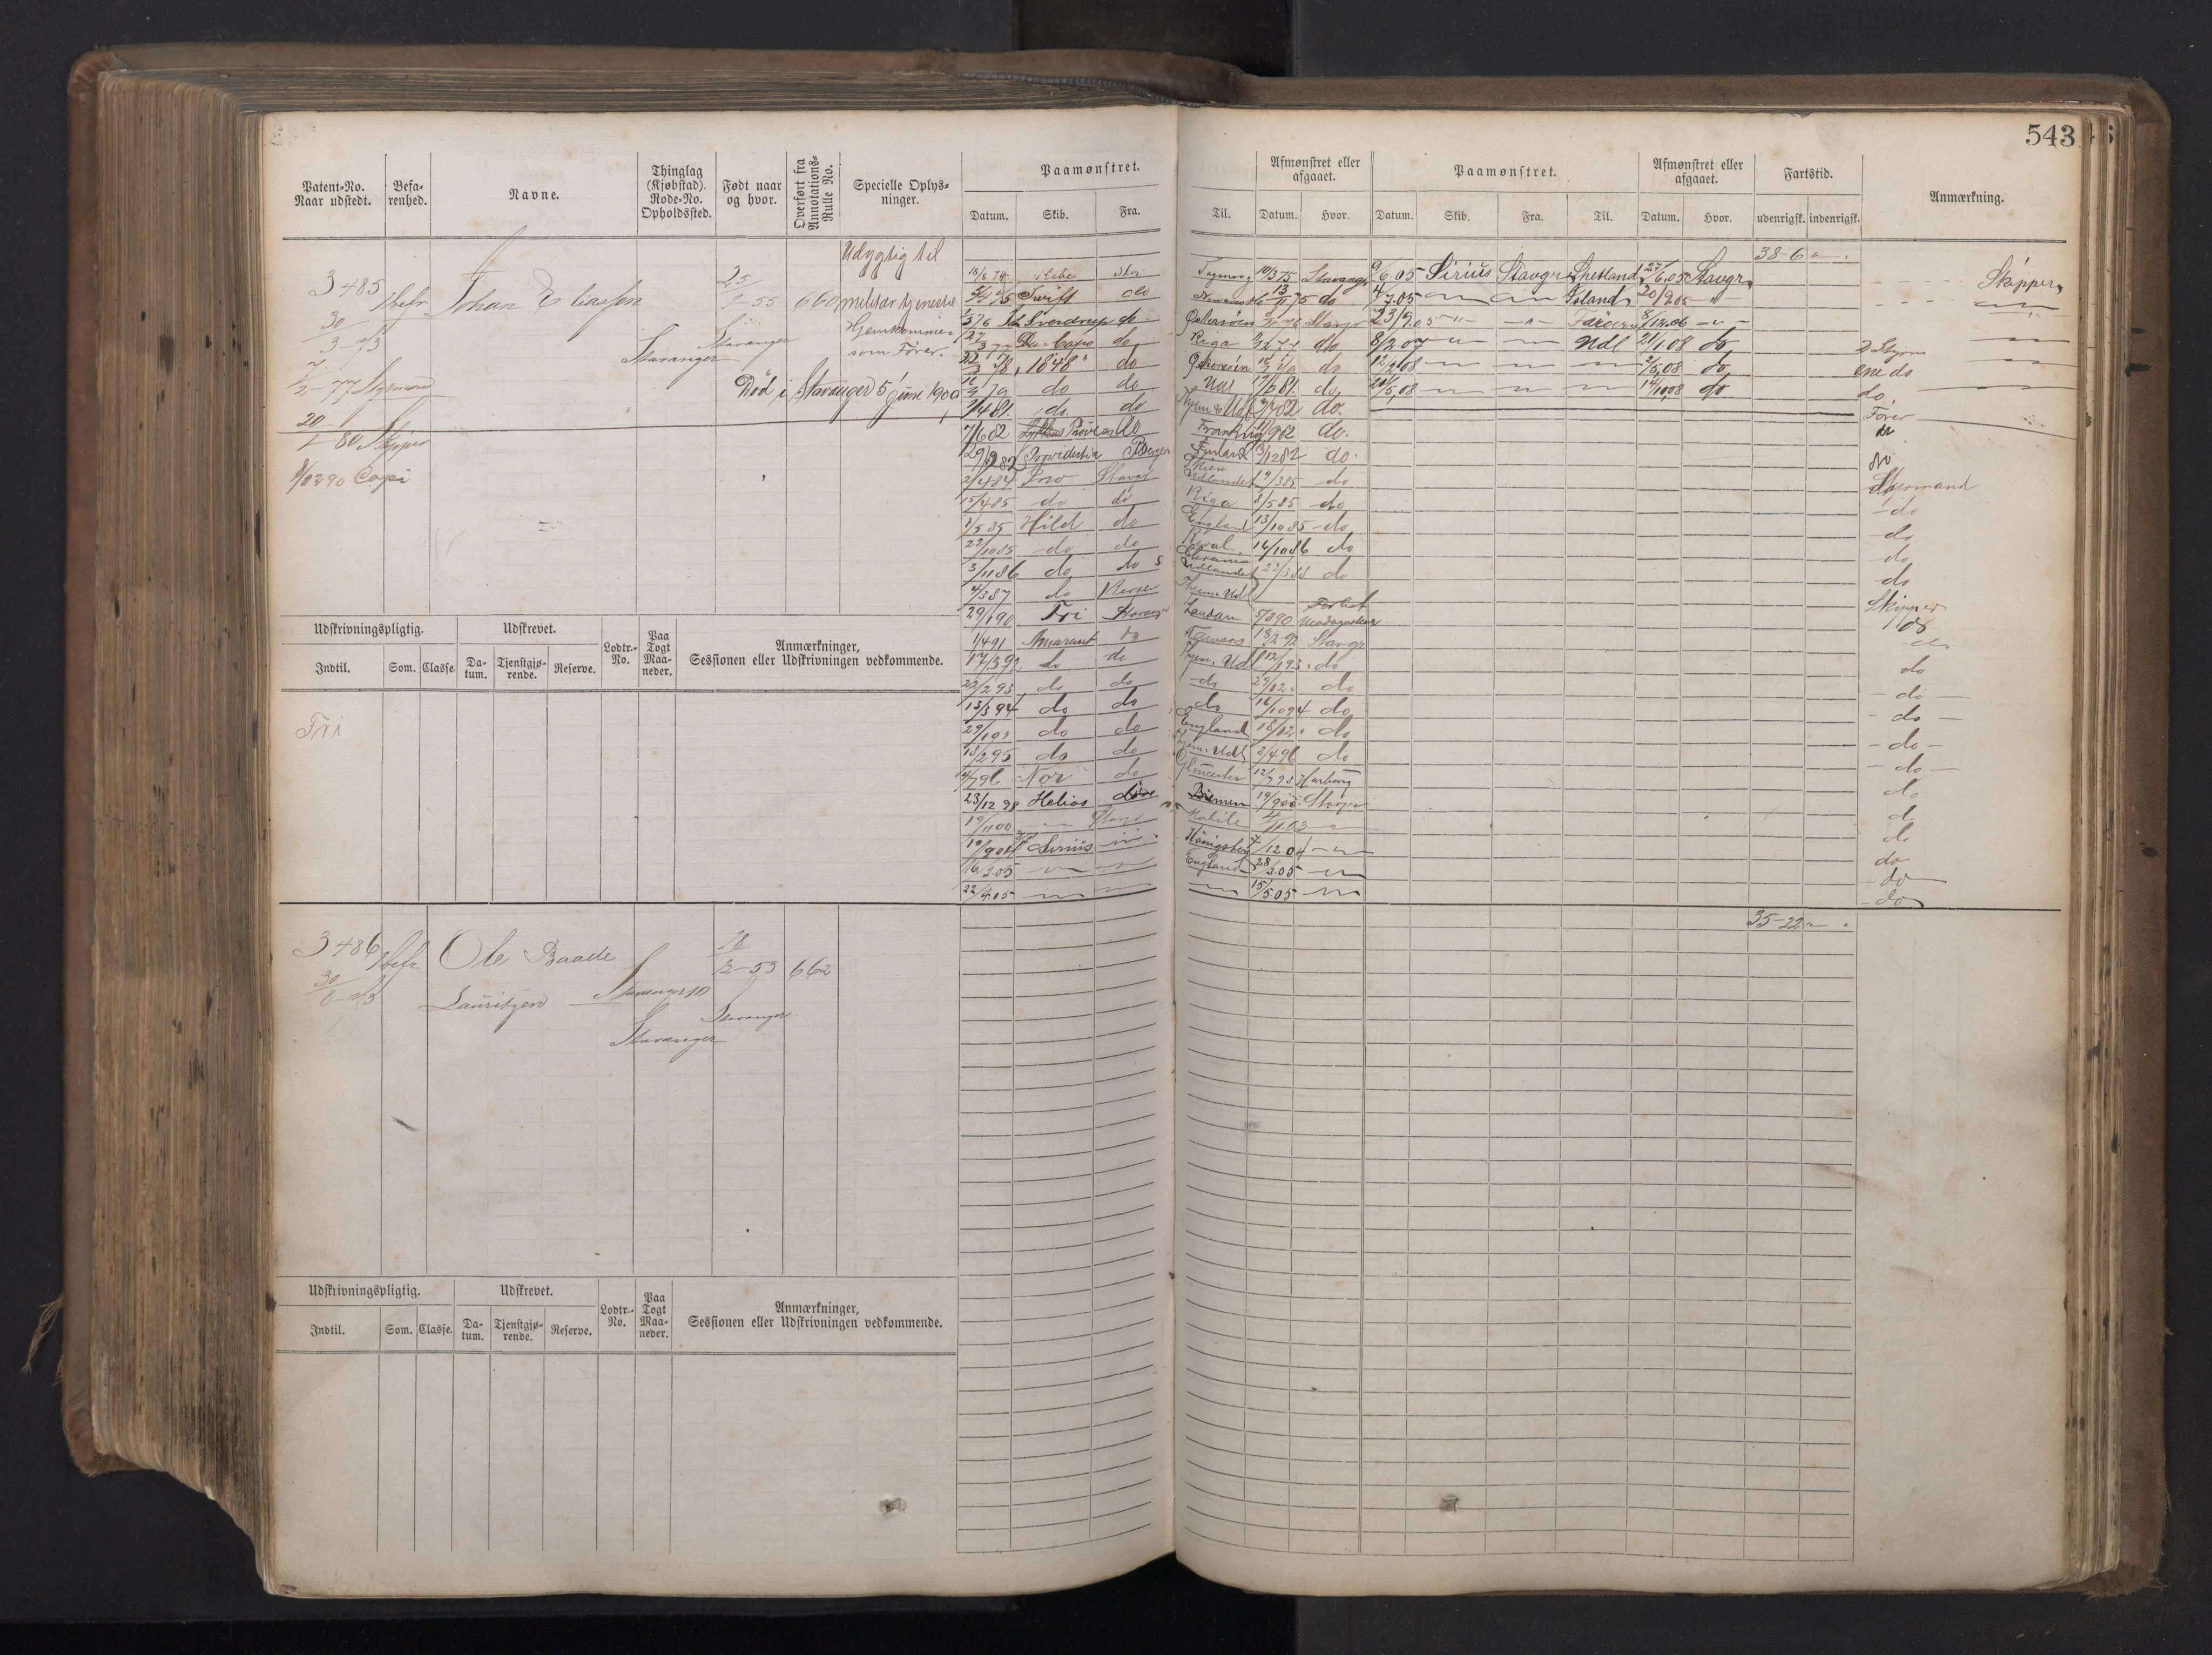 543
Patent-No. Naar udstedt.
Befarenhed.
Navne.
Thinglag (Kjøbstad). Rode-No. Opholdssted.
Født naar og hvor.
Overført fra Annotations-Rulle No.
Specielle Oplysninger.
Paamønstret.
Datum. Skib. Fra. Til.
Afmønstret eller afgaaet.
Datum. Hvor.
Paamønstret.
Datum. Skib. Fra. Til.
Afmønstret eller afgaaet.
Datum. Hvor.
Fartstid.
udenrigsk. indenrigsk.
Anmærkning.
3485
30/3-73
1/2-77 Styrmand
20/1 80 Skipper
Capi
1 befr
Johan Eliassen
Stavanger
25/1-55
Stavanger
660
Udygtig til
militær tjeneste
Hjemkommen
som Fører.
Død i Stavanger 5 juni 1909
Swift do
1848 do
do do
7/4 81 do do
7/6 82 do
29/9 82 Providentia Bergen
2/4 84 Stavgr
15/4 85 do do
1/5 85 Hild do
22/10 85 do do
3/11 86 do do
4/3 87 do Bergen
29/1 90 Fri Stavanger
1/4 91 Amarant do
17/3 92 do do
22/2 93 do do
13/3 94 do do
29/10 do do
18/2 95 do do
4/7 96 Nor do
23/12 98 Helios
19/11 00
10/9 04 Sirius
16/3 05
22/4 05
10/3 75 Stavanger
13/11 75 do
Østersøen Stavgr
Riga do
Østersøen do
Udl 17/6 81 do
Hjem & Udl do
Frankrig do
Finland 13/12 82 do
Skien
Udlandet 19/3 85 do
Riga 8/5 85 do
England 13/10 85 do
Reval 16/10 86 do
Udlandet 22/3 88 do
Hjem. Udl
London 5/8 90 Forlist Madagaskar
18/2 92 Stavgr
Hjem. Udl 12/1 93 do
do 29/12 do
do 16/10 94 do
England 18/12 do
Hjem. Udl 3/4 96 do
Gloucester 12/7 98 Harburg
Bremen 19/9 00 Stavgr
Mobile 4/11 03
Königsberg 7/12 04
England 28/3 05
15/5 05
9/6 05 Sirius Stavgr Shetland 27/6 05 Stavgr
4/7 05 Island 20/9 05
23/9 05 Færøerne 8/12 06
8/2 07 Udl 21/1 08 do
12/2 08 2/5 08 do
20/5 08 14/10 08 do
38-6
Skipper
2 Styrm
ene do
do
Fører
do
do
Styrmand
do
do
do
do
Skipper
do
do
do
do
do
do
do
do
do
do
do
do
Udskrivningspligtig.
Indtil. Som. Classe.
Udskrevet.
Datum. Tjenstgjørende. Reserve.
Lodtr.-No.
Paa Togt Maaneder.
Anmærkninger, Sessionen eller Udskrivningen vedkommende.
Fri
3486
30/6-73
1 befr
Ole Baade
Lauritzen
Stavanger
Stavanger
18/12-53
Stavanger
662
35-22
Udskrivningspligtig.
Indtil. Som. Classe.
Udskrevet.
Datum. Tjenstgjørende. Reserve.
Lodtr.-No.
Paa Togt Maaneder.
Anmærkninger, Sessionen eller Udskrivningen vedkommende.